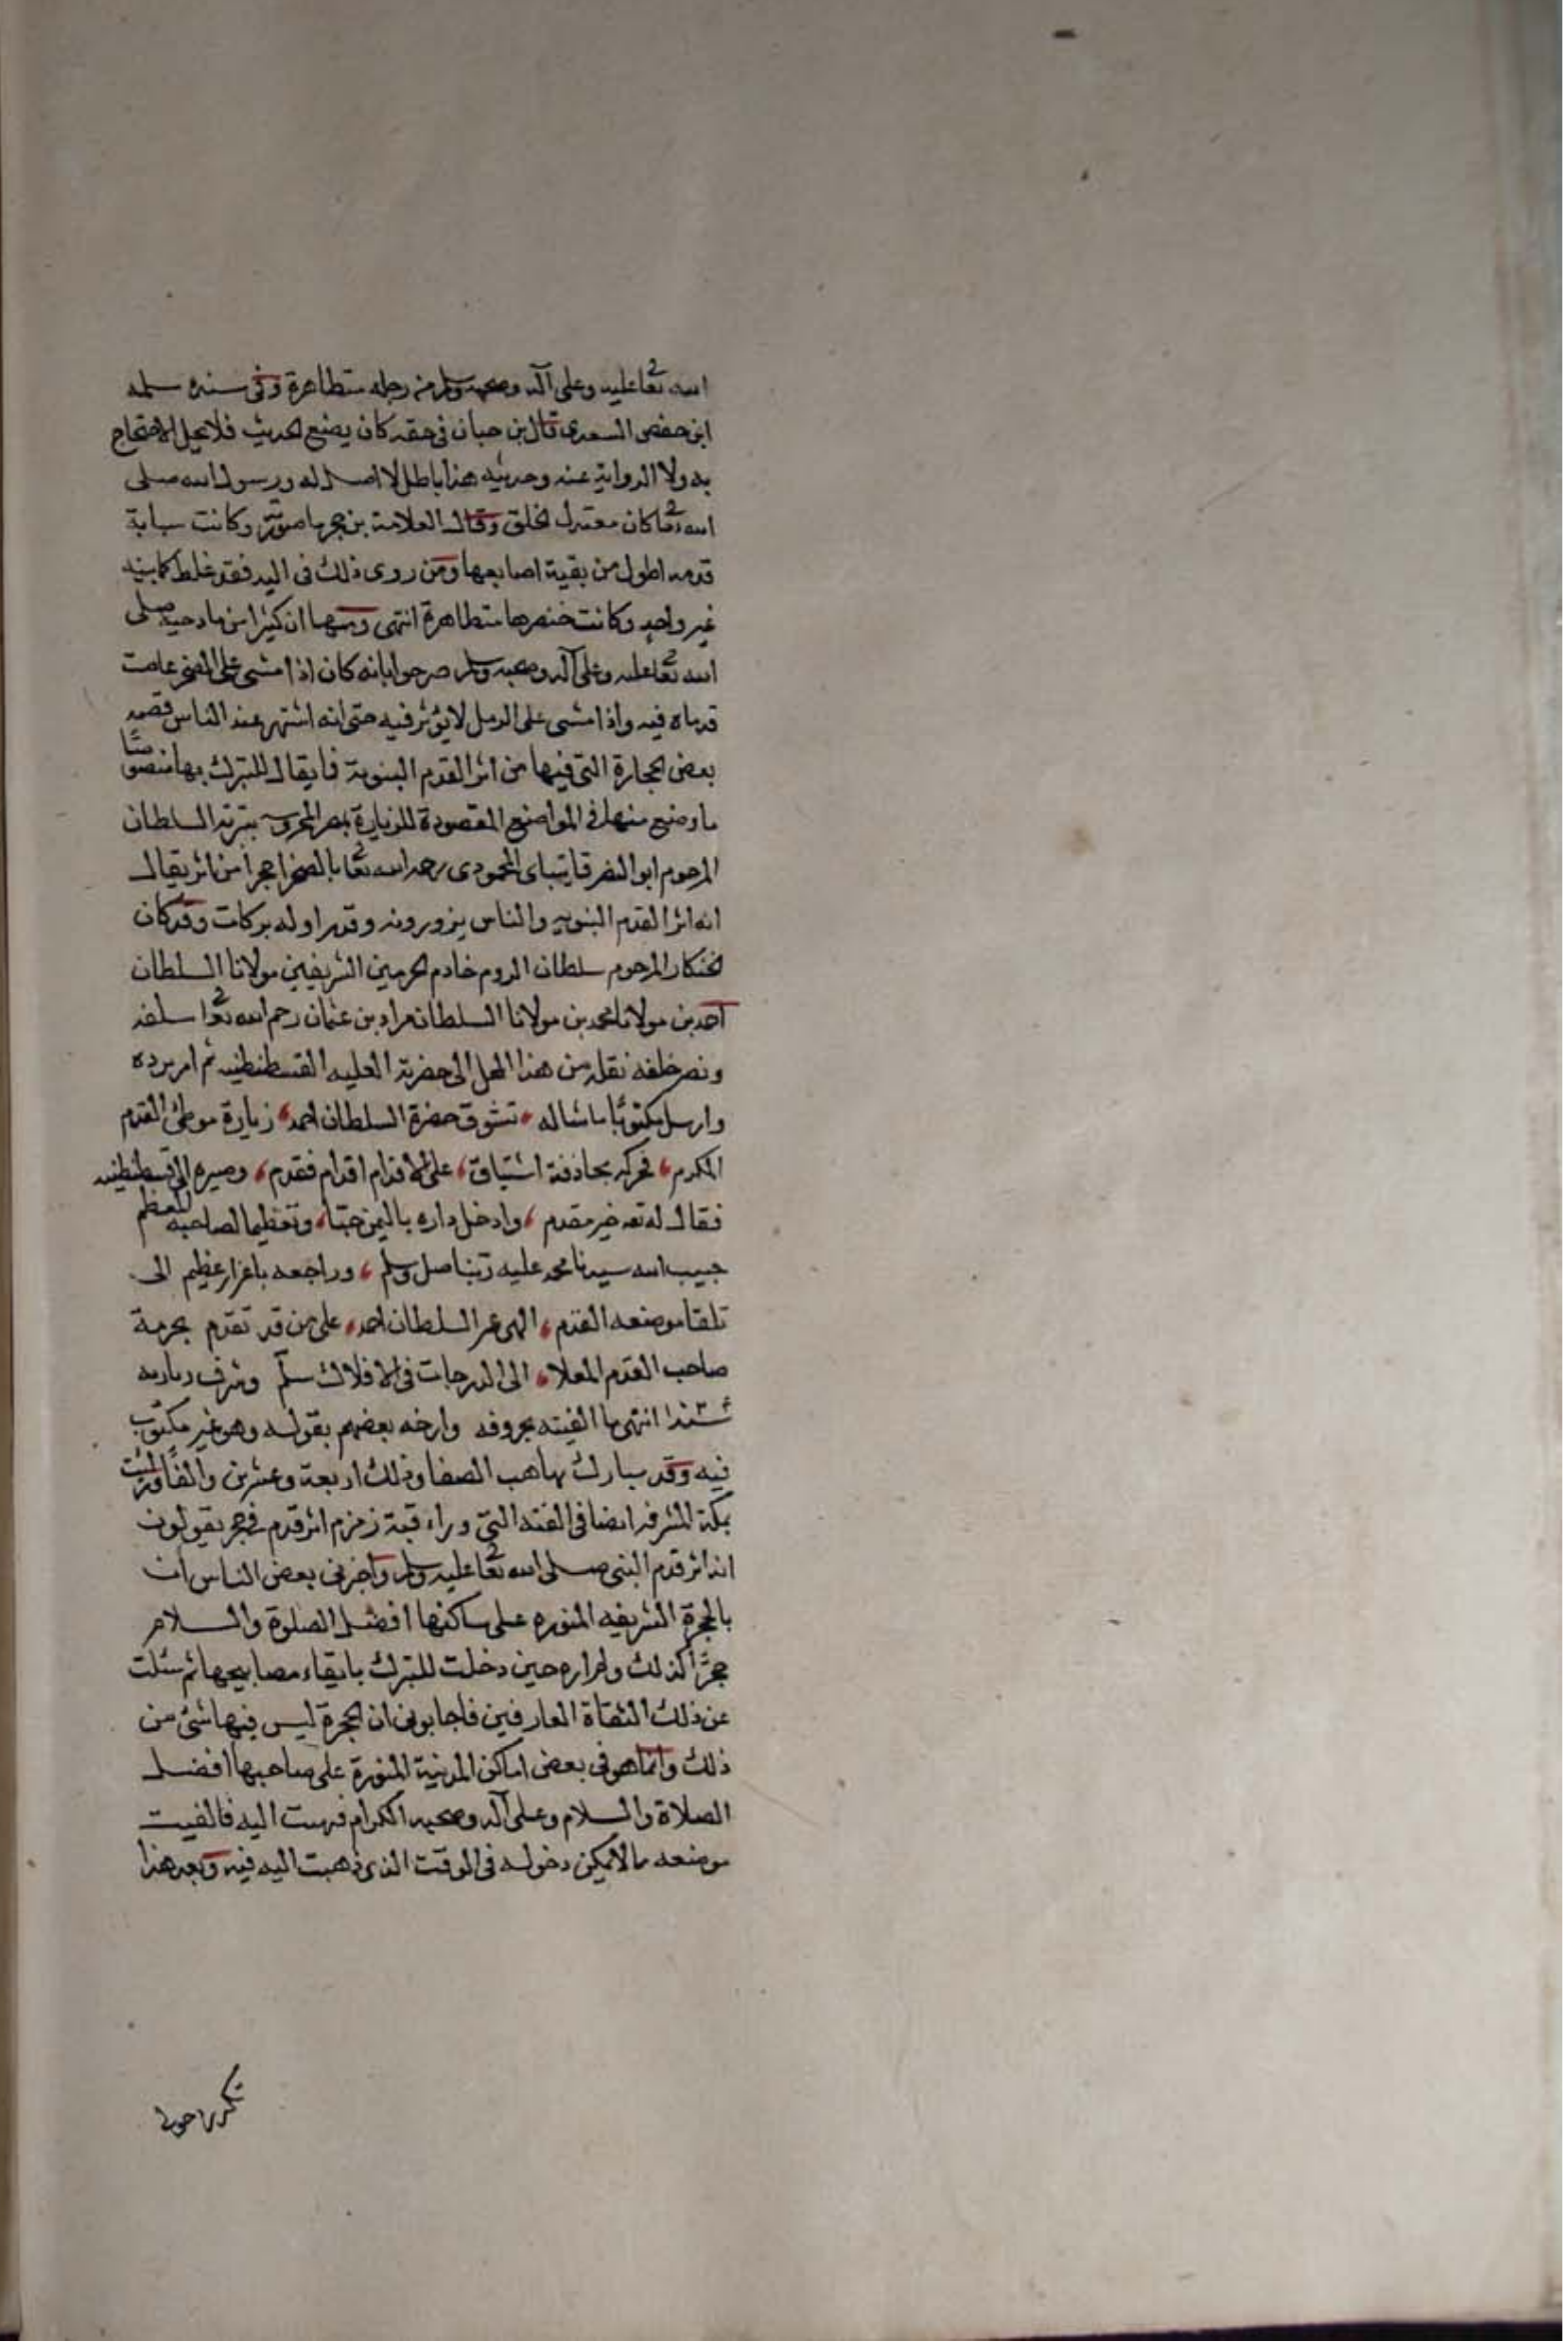 الله تعا عليه وعلى آله وصحبه وسلم من رجله متظاهرة وفى سنده سلمه
ابن حفص السعدى قال بن حبان فى حقه كان يضع الحديث فلا يحل الاحتجاج
به ولا الرواية عنه وحديثه هذا باطل لا اصل له ورسول الله صلى
الله تعا كان معتدل الخلق وقال العلامة بن حجر ما صورته وكانت سبابة
قدمه اطول من بقية اصابعها ومن روى ذلك فى اليد فقد غلط كما بينه
غير واحد وكانت خنصرها متظاهرة انتهى ومنها ان كثيرا من مادحيه صلى
الله تعا عليه وعلى آله وصحبه وسلم صرحوا بانه كان اذا مشى على الصخر غاصت
قدماه فيه واذا مشى على الرمل لا يؤثر فيه حتى انه اشتهر عند الناس قصد
بعض الحجارة التى فيها من اثر القدم النبوية فا يقال للتبرك بها منصوصًا
ما وضع منها فى المواضع المقصودة للزيارة بمصر المحروسه بتربة السلطان
المرحوم ابو النصر قايتباى المحمودى رحمه الله تعا بالصخرا حجرا من اثر يقال
انه اثر القدم النبويه والناس يزورونه وقد راوله بركات وقد كان
الخنكار المرحوم سلطان الروم خادم الحرمين الشريفين مولانا السلطان
احمد بن مولانا محمد بن مولانا السلطان مراد بن عثمان رحم الله تعا سلفه
ونصر خلفه نقله من هذا المحل الى حضرته العليه القسطنطنيه ثم امر برده
وارسل مكتوبًا ما مثاله ، تشوق حضرة السلطان احمد ، زيارة موطئ القدم
المكرم ، فحركه بجاذفة اشتياق ، على الاقدام اقدام فقدم ، وصيره الى قسطنطنيه
فقال له تعد خير مقدم ، وادخل داره باليمن حبّا ، وتعظيما لصاحبه المعظم
حبيب الله سيدنا محمد عليه ربنا صل وسلم ، وراجعه باعزاز عظيم الى
تلقا موضعه القدم ، الهى عمر السلطان احمد ، على من قد تقدم بحرمة
صاحب القدم المعلا ، الى الدرجات فى الافلاك سلّم وشرف
انتهى ما الفيته بحروفه وارخه بعضهم بقوله وهو غير مكتوب
فيه وقد مبارك الصفا وذلك اربعة وعشرين والفًا
بمكة المشرفه ايضا فى القبة التى وراء قبة زمزم اثر قدم فى حجر يقولون
انه اثر قدم النبى صلى الله تعا عليه وسلم واخبرنى بعض الناس ان
بالحجرة الشريفه المنوره على ساكنها افضل الصلوة والسلام
حجرًا كذلك ولم اره حين دخلت للتبرك بايقاء مصابيحها ثم سئلت
عن ذلك الثقاة العارفين فاجابونى ان الحجرة ليس فيها شئ من
ذلك وانما هو فى بعض اماكن المدنية المنورة على صاحبها افضل
الصلاة والسلام وعلى آله وصحبه الكرام فذهبت اليه فالفيت
موضعه مالا يمكن دخوله فى الوقت الذى ذهبت اليه فيه وبعد هذا